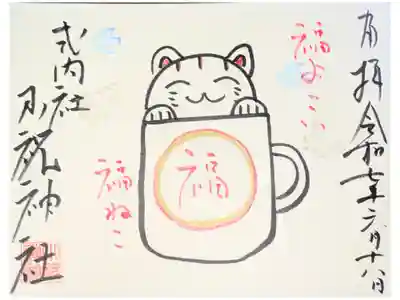 奉拝 令和七年二月十八日
福よこい
福
福ねこ
式内社
神社